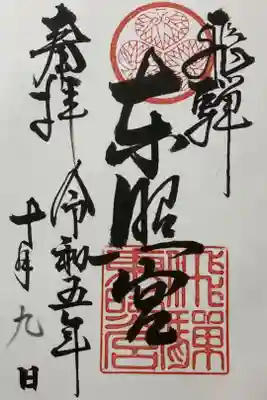 飛騨
東照宮
奉拝
令和五年
十月九日
飛騨東照宮